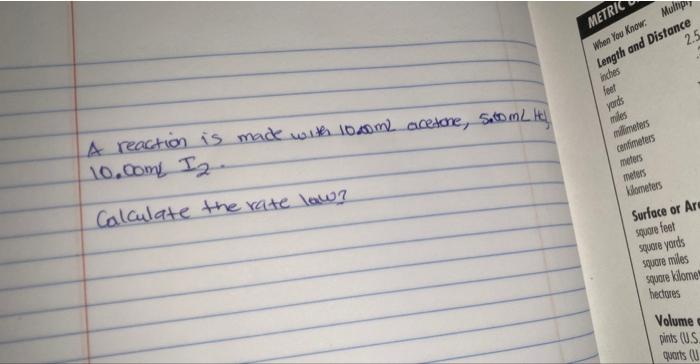 A reaction is made with 10.00mL acetone, 5.00mL HCl,
10.00mL I2.
Calculate the rate law?
METRIC
When You Know: Multiply
Length and Distance
inches 2.5
feet
yards
miles
millimeters
centimeters
meters
meters
kilometers
Surface or Are
square feet
square yards
square miles
square kilomet
hectares
Volume
pints (U.S.
quarts (U.